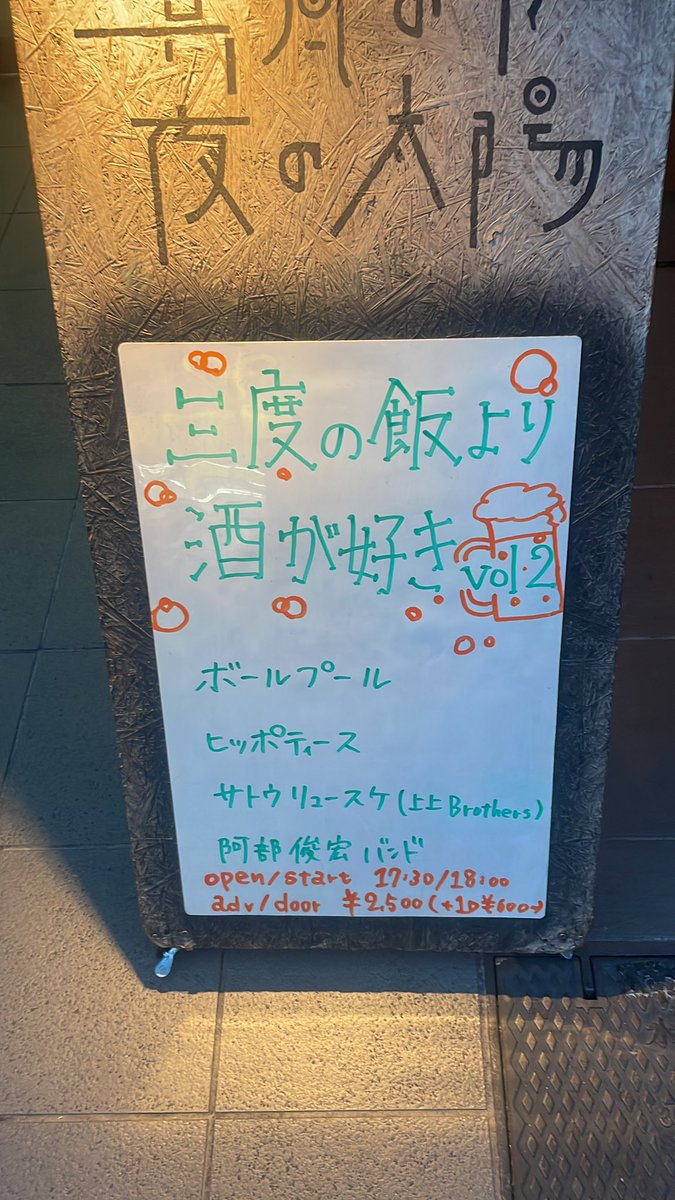 夜の太陽
三度の飯より
酒が好き vol 2
ボールプール
ヒッポティース
サトウリュースケ(上上Brothers)
阿部俊宏バンド
open/start 17:30/18:00
adv/door ¥2,500(+1D¥600-)